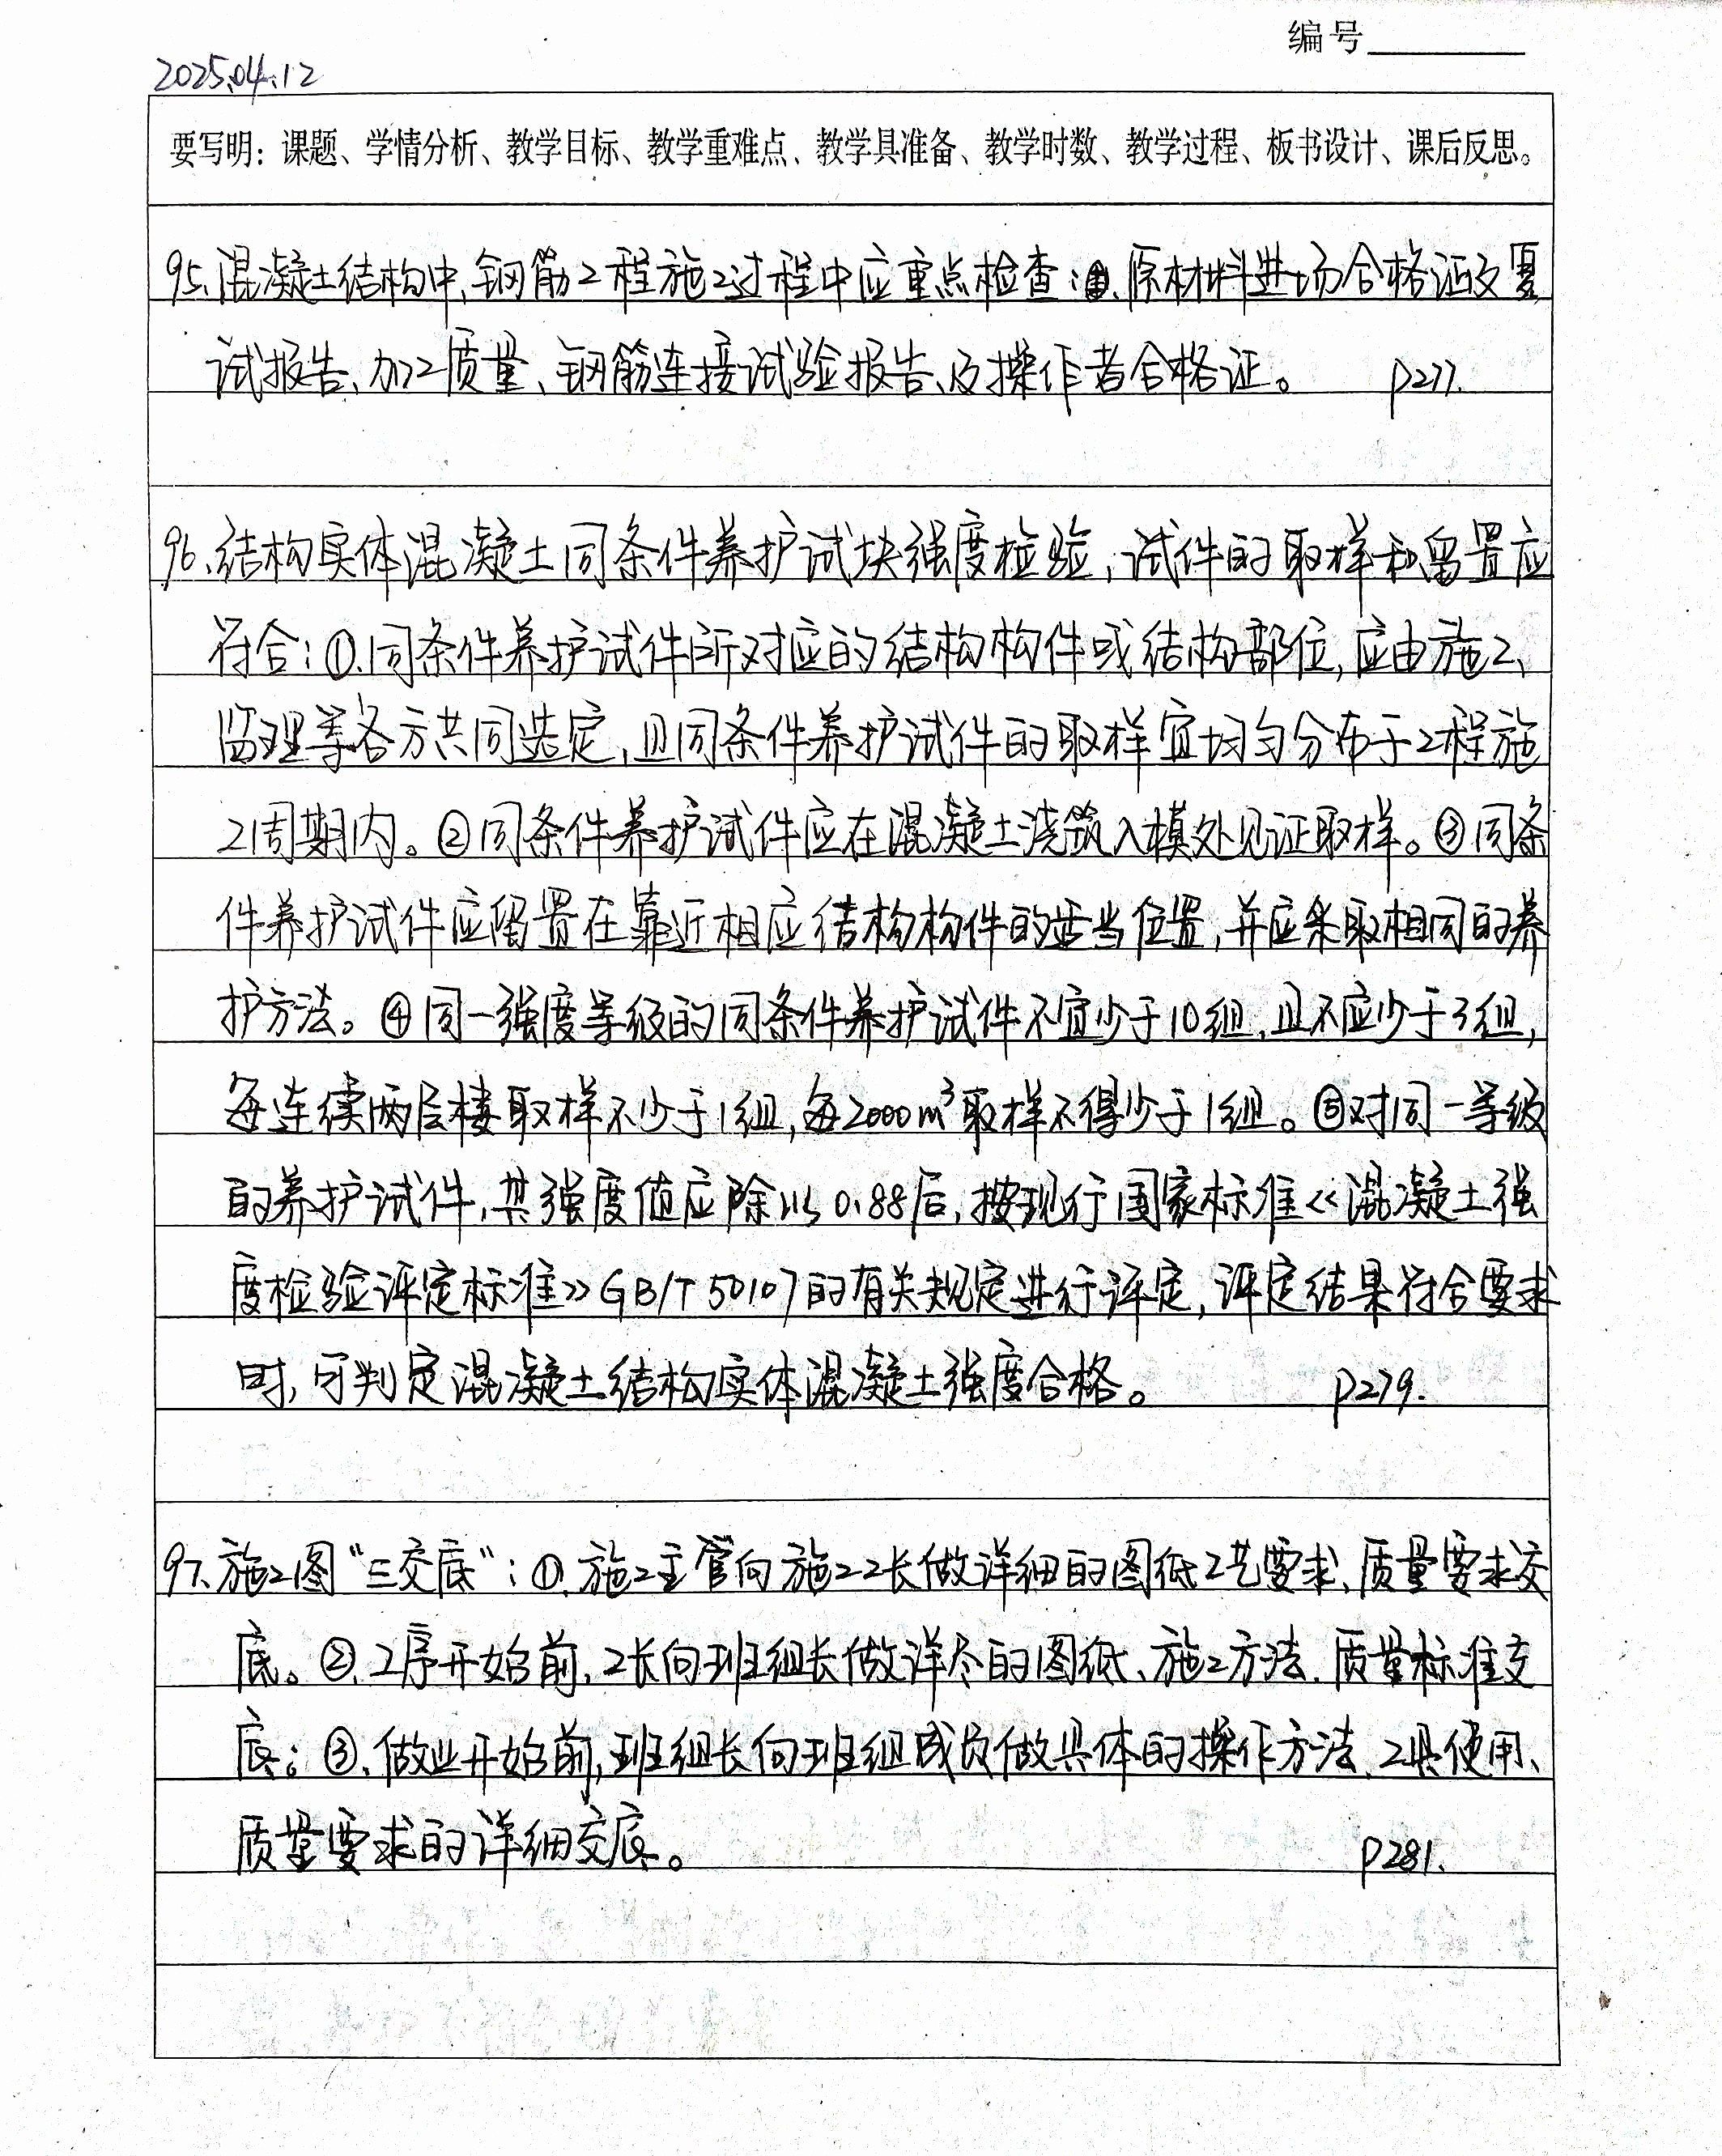 编号
2025.04.12
要写明：课题、学情分析、教学目标、教学重难点、教学具准备、教学时数、教学过程、板书设计、课后反思。
95、混凝土结构中，钢筋工程施工过程中应重点检查：原材料进场合格证及复
试报告、加工质量、钢筋连接试验报告、及操作者合格证。 P277.
96、结构实体混凝土同条件养护试块强度检验，试件的取样和留置应
符合：①、同条件养护试件所对应的结构构件或结构部位，应由施工、
监理等各方共同选定，且同条件养护试件的取样宜均匀分布于工程施
工周期内。②同条件养护试件应在混凝土浇筑入模处见证取样。③同条
件养护试件应留置在靠近相应结构构件的适当位置，并应采取相同的养
护方法。④同一强度等级的同条件养护试件不宜少于10组，且不应少于3组，
每连续两层楼取样不少于1组，每2000m³取样不得少于1组。⑤对同一等级
的养护试件，其强度值应除以0.88后，按现行国家标准《混凝土强
度检验评定标准》GB/T 50107的有关规定进行评定，评定结果符合要求
时，可判定混凝土结构实体混凝土强度合格。 P279.
97、施工图“三交底”：①、施工主管向施工工长做详细的图纸工艺要求、质量要求交
底。②、工序开始前，工长向班组长做详尽的图纸、施工方法、质量标准交
底；③、做业开始前，班组长向班组成员做具体的操作方法、工具使用、
质量要求的详细交底。 P281.